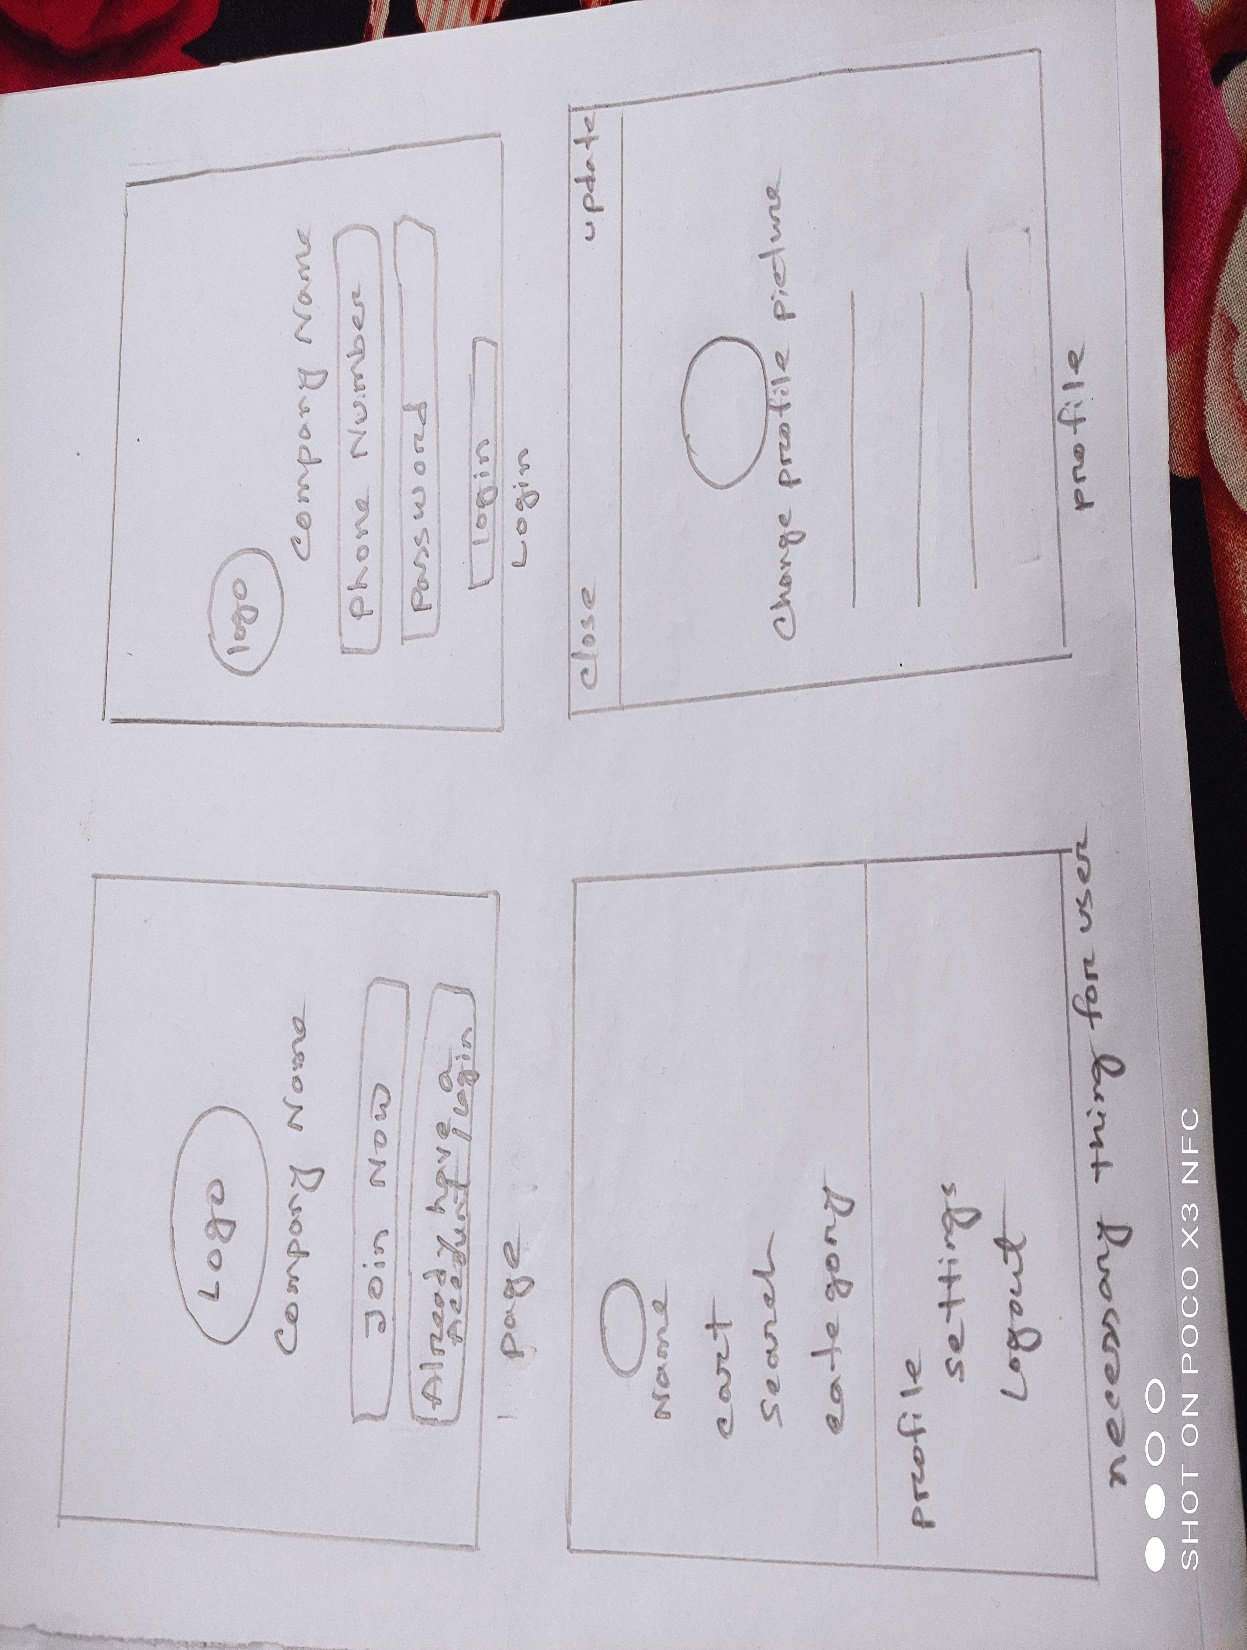 Logo
Company Name
Join Now
Already have a
Account / Login
page
logo
Company Name
Phone Number
Password
login
Login
Name
cart
Search
category
profile
settings
Logout
for user
close update
Change profile picture
profile
SHOT ON POCO X3 NFC